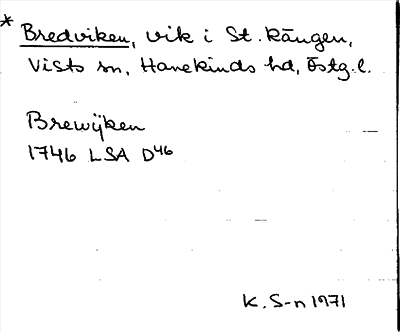 * Bredviken, vik i St. Rängen,
Vists sn, Hanekinds hd, Östg. l.
Brewÿken
1746 LSA D46
K. S-n 1971